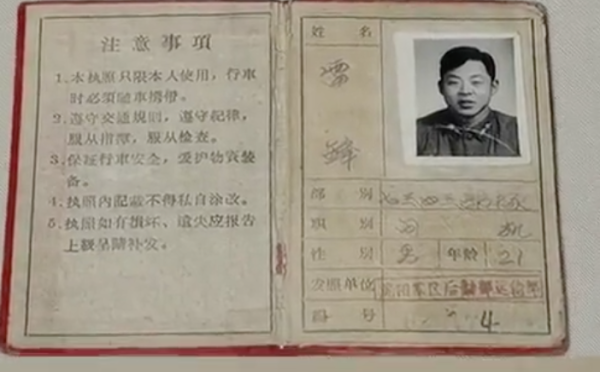 注意事項
1.本执照只限本人使用，行車
时必須随車携带。
2.遵守交通規則，遵守紀律，
服从指揮，服从检查。
3.保証行車安全，爱护物資装
备。
4.执照內記載不得私自涂改。
5.执照如有損坏、遺失应报告
上級呈請补发。
姓 名
雷
锋
部 別
職 別 司 机
性 別 男 年龄 21
发照单位 沈阳军区后勤部运输部
号 4